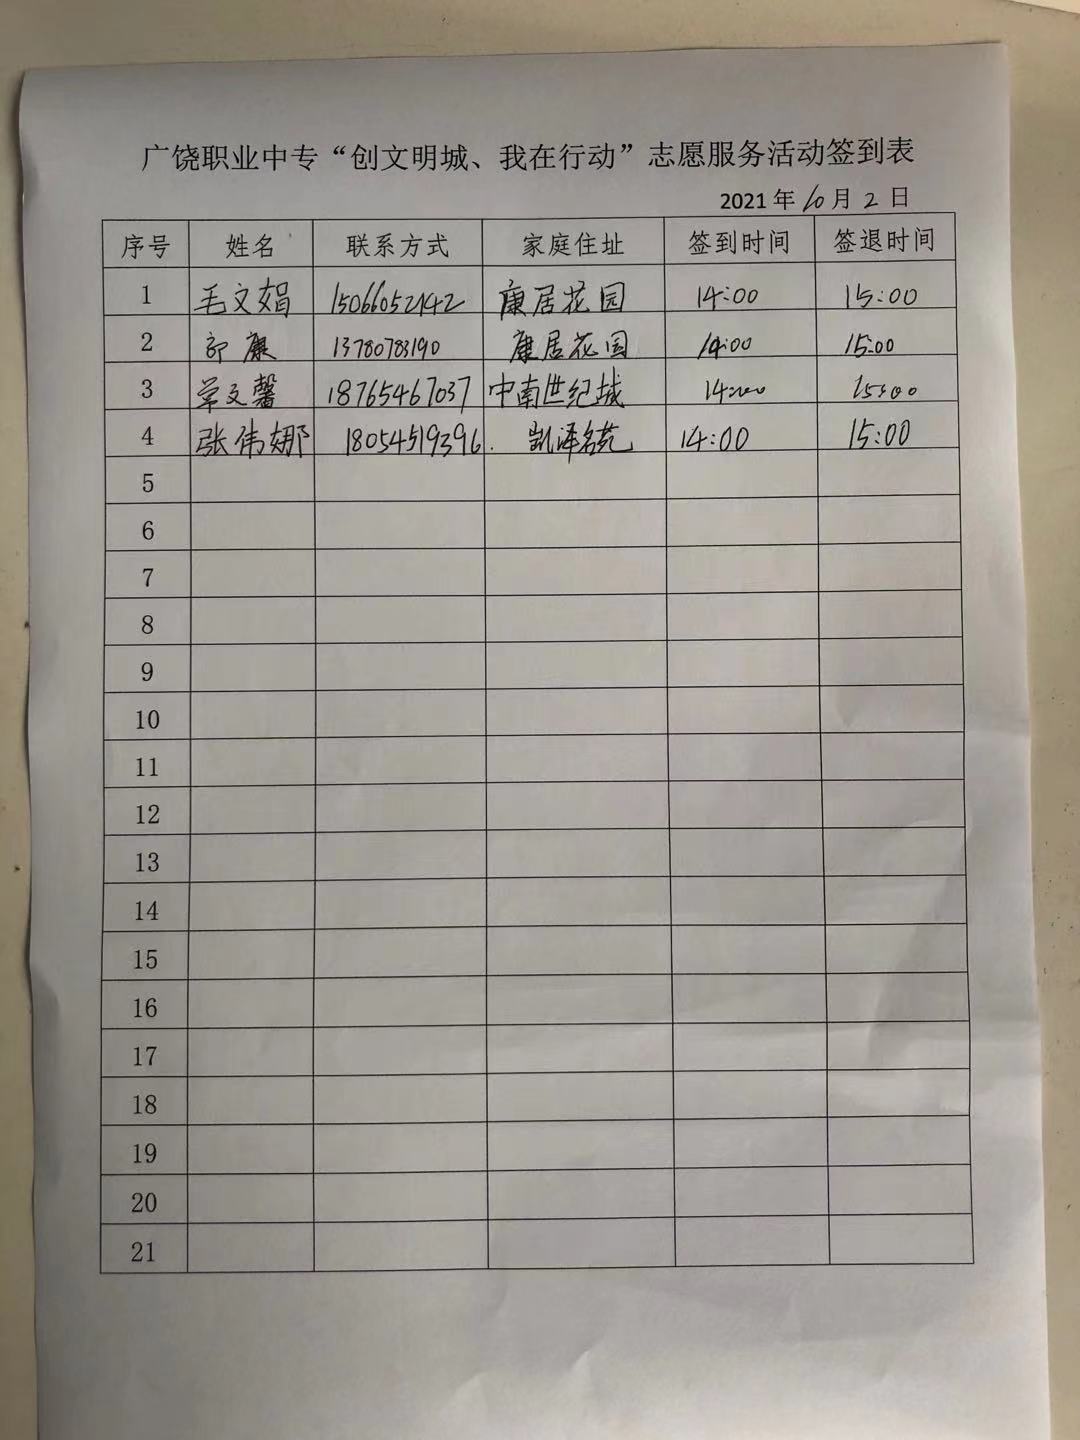 广饶职业中专“创文明城、我在行动”志愿服务活动签到表
2021年10月2日
序号 姓名 联系方式 家庭住址 签到时间 签退时间
1 毛文娟 15066052142 康居花园 14:00 15:00
2 郭康 13780783190 康居花园 14:00 15:00
3 文馨 18765467037 中南世纪城 14:00 15:00
4 张伟娜 18054519396. 凯泽名苑 14:00 15:00
5
6
7
8
9
10
11
12
13
14
15
16
17
18
19
20
21